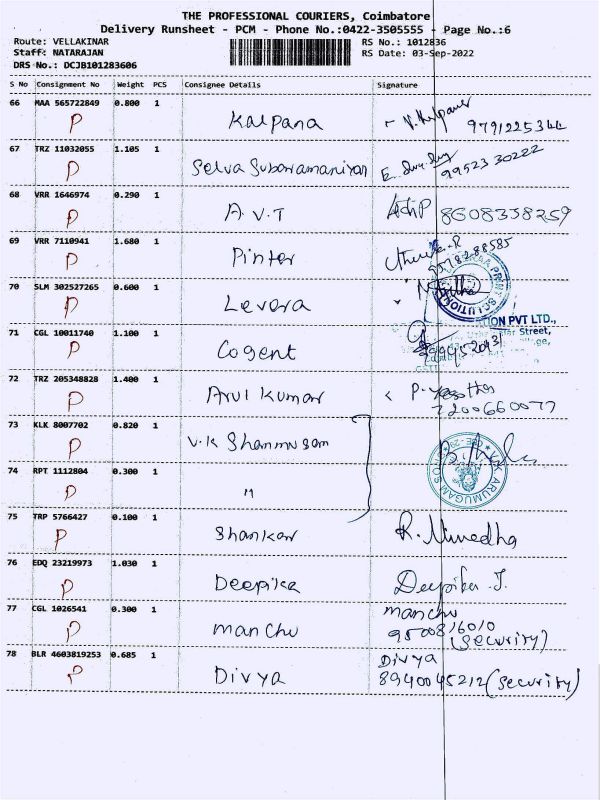 THE PROFESSIONAL COURIERS, Coimbatore
Delivery Runsheet - PCM - Phone No.:0422-3505555 - Page No.:6
Route: VELLAKINAR RS No.: 1012836
Staff: NATARAJAN RS Date: 03-Sep-2022
DRS No.: DCJB101283606
S No Consignment No Weight PCS Consignee Details Signature
66 MAA 565722849 0.800 1
P Kalpana 9791225344
67 TRZ 11032055 1.105 1
P Selva Subaramaniyan 99523 30222
68 VRR 1646974 0.290 1
P A.V.T 8608338259
69 VRR 7110941 1.680 1
P Pinter 9578288585
70 SLM 302527265 0.600 1
P Levera
TION PVT LTD.,
Street,
71 CGL 10011740 1.100 1
P Cogent
72 TRZ 205348828 1.400 1
P Arul Kumar 7200660077
73 KLK 8007702 0.820 1
P V.K Shanmugam
74 RPT 1112804 0.300 1
P "
V.K ARUMUGAM
75 TRP 5766427 0.100 1
P Shankar R. Nivedha
76 EDQ 23219973 1.030 1
P Deepika Deepika J.
77 CGL 1026541 0.300 1 manchu
P manchu 9500816010
(Security)
78 BLR 4603819253 0.685 1 Divya
P Divya 8940045212 (Security)